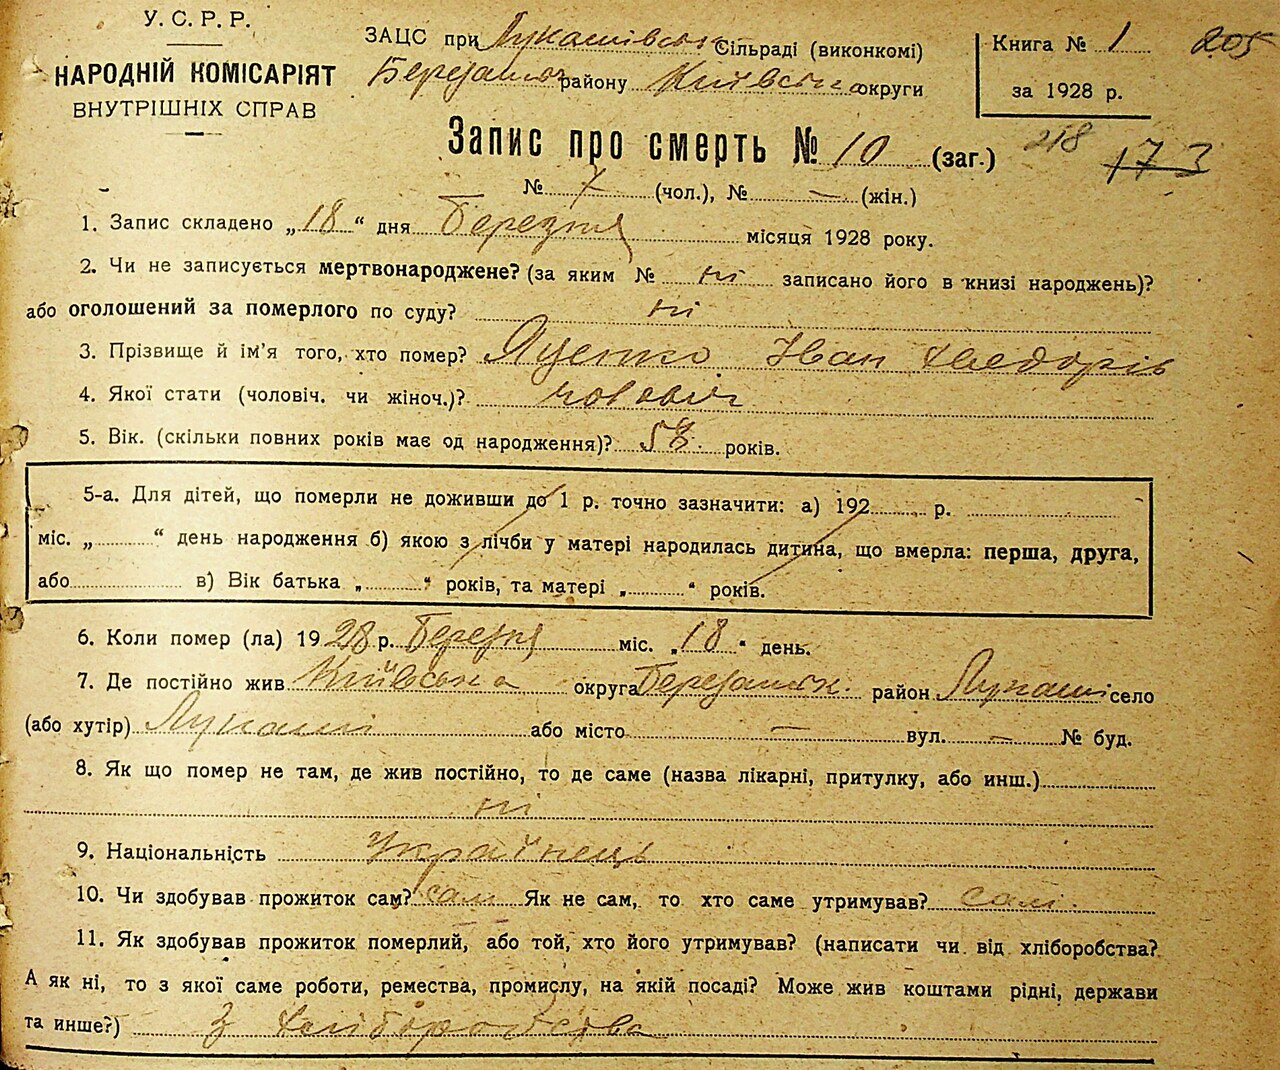 У. С. Р. Р.
НАРОДНІЙ КОМІСАРІЯТ
ВНУТРІШНІХ СПРАВ
ЗАЦС при Лукашівськ Сільраді (виконкомі)
району Київська округи
Книга № 1
за 1928 р.
205
218
173
Запис про смерть № 10 (заг.)
№ 7 (чол.), № — (жін.)
1. Запис складено „18“ дня Березня місяця 1928 року.
2. Чи не записується мертвонароджене? (за яким № ні записано його в книзі народжень)?
або оголошений за померлого по суду? ні
3. Прізвище й ім'я того, хто помер? Яценко Іван Хведорів
4. Якої стати (чоловіч. чи жіноч.)? чоловіч
5. Вік. (скільки повних років має од народження)? 58 років.
5-а. Для дітей, що померли не доживши до 1 р. точно зазначити: а) 192 р.
міс. „ “ день народження б) якою з лічби у матері народилась дитина, що вмерла: перша, друга,
або в) Вік батька „ “ років, та матері „ “ років.
6. Коли помер (ла) 1928 р. Березня міс. „18“ день.
7. Де постійно жив Київська округа Березанськ. район Лукаші село
(або хутір) Лукаші або місто — вул. — № буд.
8. Як що помер не там, де жив постійно, то де саме (назва лікарні, притулку, або инш.)
ні
9. Національність Українець
10. Чи здобував прожиток сам? сам Як не сам, то хто саме утримував? сам.
11. Як здобував прожиток померлий, або той, хто його утримував? (написати чи від хліборобства?
А як ні, то з якої саме роботи, ремества, промислу, на якій посаді? Може жив коштами рідні, держави
та инше?) З хліборобства